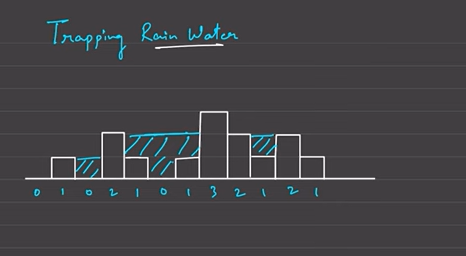 Trapping Rain Water
0 1 0 2 1 0 1 3 2 1 2 1